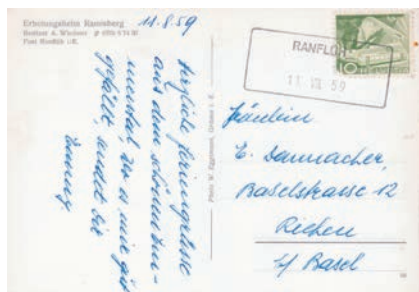 Erholungsheim Ramisberg
Besitzer A. Wiedmer
Post Ranflüh i/E.
11.8.59
Herzliche Feriengrüsse
aus dem schönen Em-
mental, wo es mir gut
gefällt, sendet Sie
Emmy
Photo W. Eggimann, Grünen i. E.
RANFLÜH
11 VIII 59
10
Fräulein
E. Danmacher,
Baselstrasse 12
Riehen
b/ Basel